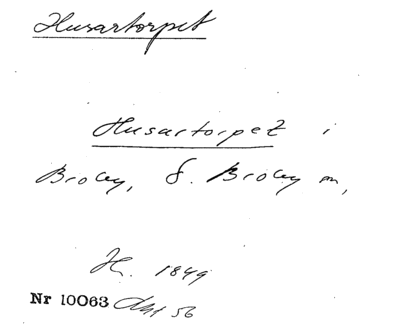 Husartorpet
Husartorpet i
Broby, Ö. Broby sn,
H. 1849
Nr 10063 Akt 56